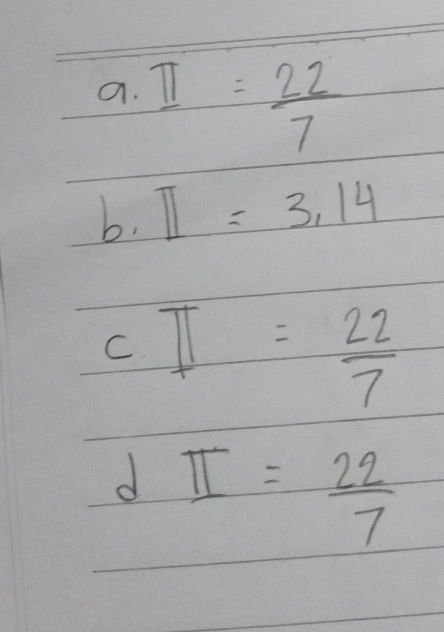 a. π = 22/7
b. π = 3,14
c π = 22/7
d π = 22/7